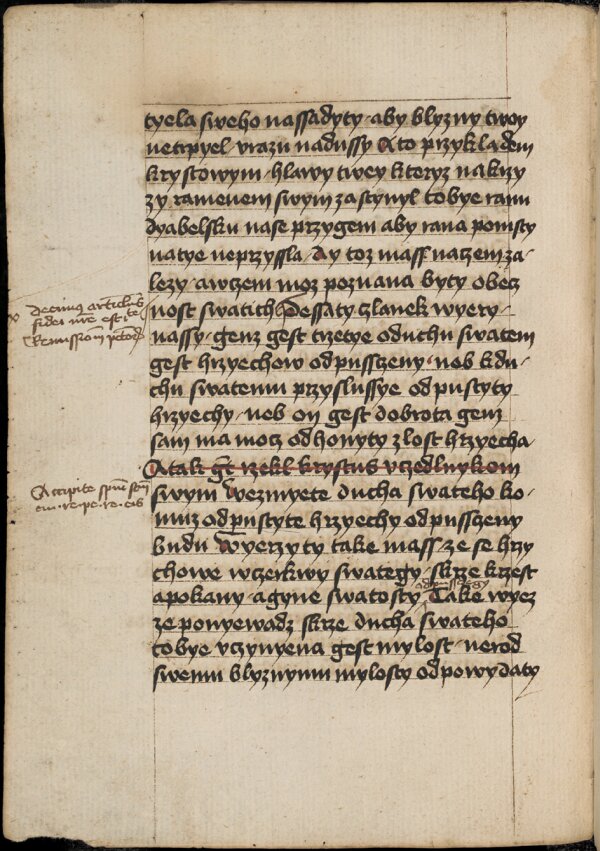 tyela sweho nassadyty aby blyzny twoy
netrpyel vrazu nadussy A to przykladem
krystowym hlawy twey kteryz nakrzy
zy ramenem swym zastynyl tobye ranu
dyabelsku nase przygem aby rana pomsty
natye neprzyssla Ay toz mass naczem za-
lezy awczem moz poznana byty obecz
nost swatich Dessaty czlanek wyery
nassy genz gest trzetye oduchu swatem
gest hrzyechow odpussczeny neb kdu-
chu swatemu przyslussye odpustyty
hrzyechy neb on gest dobrota genz
sam ma mocz odhonyty zlost hrzyecha
Atak gt rzekl krystus vczedlnykom
swym Wezmyete ducha swateho ko-
muz odpustyte hrzyechy odpussczeny
budu Wyerzyty take mass ze se hrzy
chowe wczierkwy swategy skrze krzest
apokany agyne swatosty odpussczegy
Take wyez
ze ponyewadz skrze ducha swateho
tobye vczynyena gest mylost nerod
swemu blyznymu mylosty odpowydaty
decimus articulus
fidei nre est te
Remissiom pctor
Accipite spm stm
re pe re eis